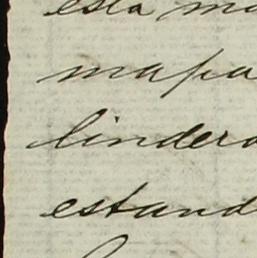 esta ma
mapa
lindero
estand